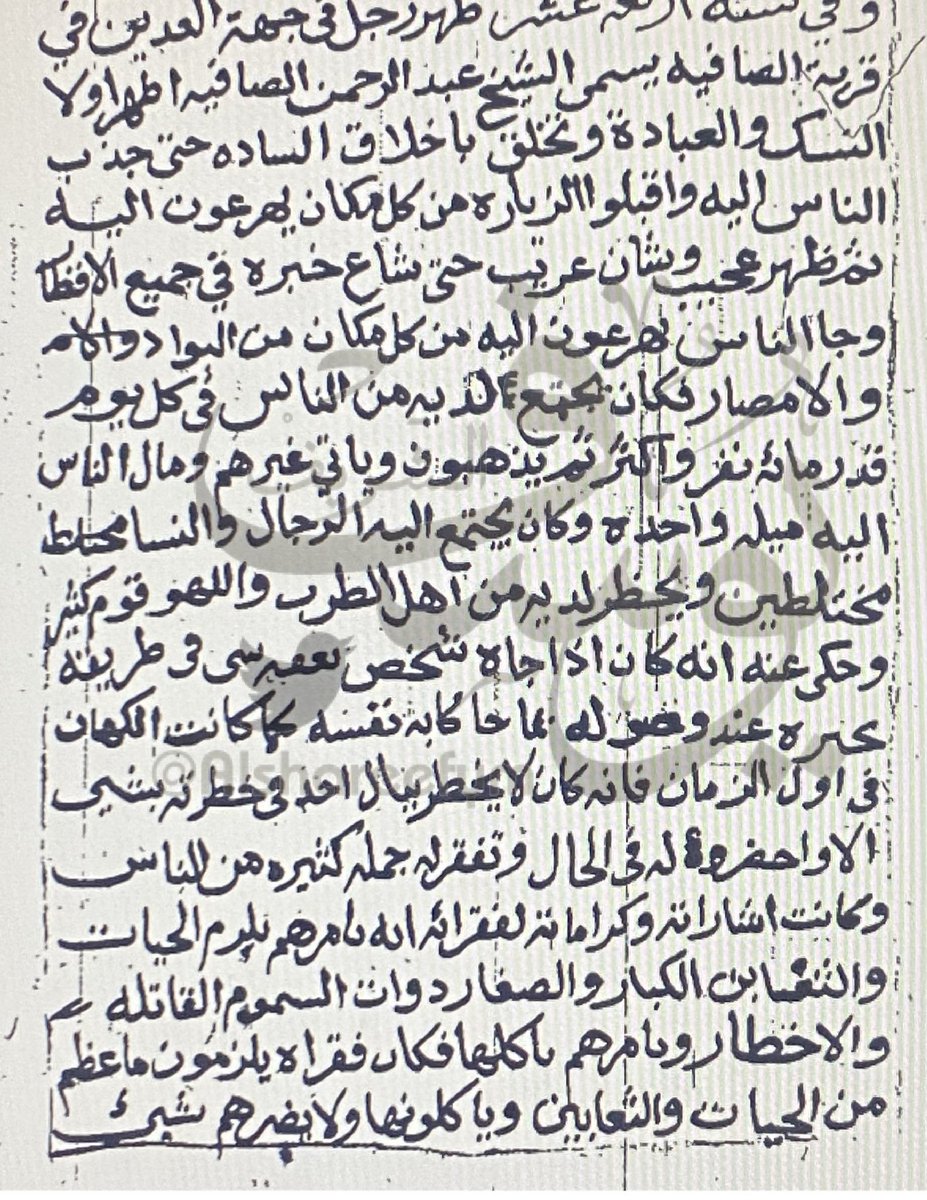 وفي سنة اربعة عشر ظهر رجل في جهة العدين في
قرية الصافيه يسمى الشيخ عبد الرحمن الصافيه اظهر اولا
النسك والعبادة وتخلق باخلاق الساده حتى جذب
الناس اليه واقبلوا الزياره من كل مكان يهرعون اليه
ثم ظهر عجيب وشان غريب حتى شاع خبره في جميع الاقطا
وجا الناس يهرعون اليه من كل مكان من البوادو الام
والامصار فكان يجتمع لديه من الناس في كل يوم
قدر مائة نفر واكثر ثم يذهبون وياتي غيرهم ومال الناس
اليه ميله واحده وكان يجتمع اليه الرجال والنسا مختلط
مختلطين ويحظر لديه من اهل الطرب واللهو قوم كثير
وحكى عنه انه كان اذا جاه شخص في طريقه
يخبره عند وصوله بما حاكا به نفسه كما كانت الكهان
في اول الزمان فانه كان لا يخطر ببال احد في خطرته بشيي
الا واحضروه له في الحال وتفقر له جمله كثيره من الناس
وكانت اشاراته وكراماته لفقرائه انه يامرهم بلزم الحيات
والثعابن الكبار والصغار دوات السموم القاتله
والاخطار ويامرهم باكلها فكان فقراه يلزمون ما عظم
من الحيات والثعابين وياكلونها ولا يضرهم شيئ
@Alshareef